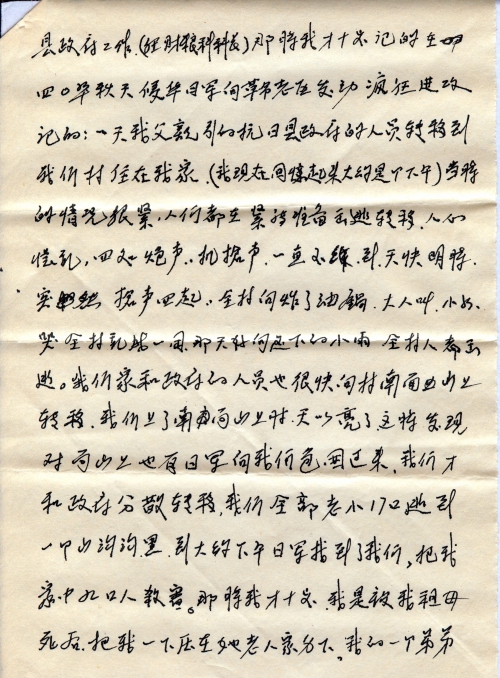 县政府工作.(任财粮科科长)那时我才十岁记的在
四〇年秋天侵华日军向革命老区发动疯狂进攻
记的:一天我父亲引的抗日县政府的人员转移到
我们村住在我家.(我现在回忆起来大约是个下午)当时
的情况很紧,人们都在紧张准备击逃转移.人们
慌乱,四处炮声.机枪声.一直不断.到天快明时.
突然枪声四起.全村向炸了油锅.大人叫.小娃
哭全村乱做一团.那天好向还下的小雨全村人都出
逃。我们家和政府的人员也很快向村南面山上
转移.我们上了南面向山上时.天以亮了这时发现
对向山上也有日军向我们包围过来.我们才
和政府分散转移,我们全部老小17口逃到
一个山沟沟里.到大约下午日军找到了我们,把我
家中九口人杀害。那时我才十岁.我是被我祖母
死后.把我一下压在她老人家身下,我的一个弟弟